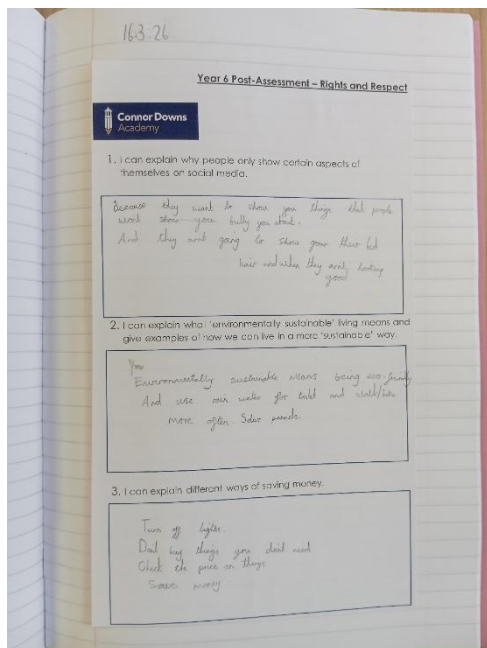 16.3.26
Year 6 Post-Assessment – Rights and Respect
Connor Downs
Academy
1. I can explain why people only show certain aspects of
themselves on social media.
Because they want to show you things that people
wont bully you about.
And they arnt going to show your their bed
hair and when they arnt looking
good
2. I can explain what 'environmentally sustainable' living means and
give examples of how we can live in a more 'sustainable' way.
You
Environmentally sustainable means being eco-friendly
And use rain water for toilet and walk/bike
more often. Solar panels.
3. I can explain different ways of saving money.
Turn off lights.
Dont buy things you dont need
Check the price on things
Save money